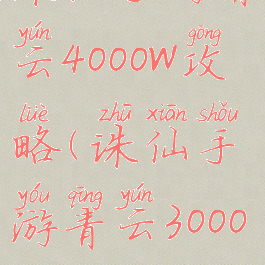 yún gōng
云4000W攻
lüè zhū xiān shǒu
略(诛仙手
yóu qīng yún
游青云3000